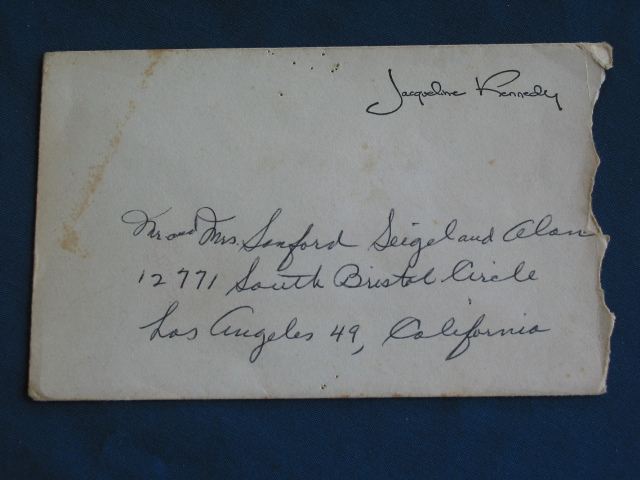 Jacqueline Kennedy
Mr and Mrs. Sanford Seigel and Alan
12771 South Bristol Circle
Los Angeles 49, California